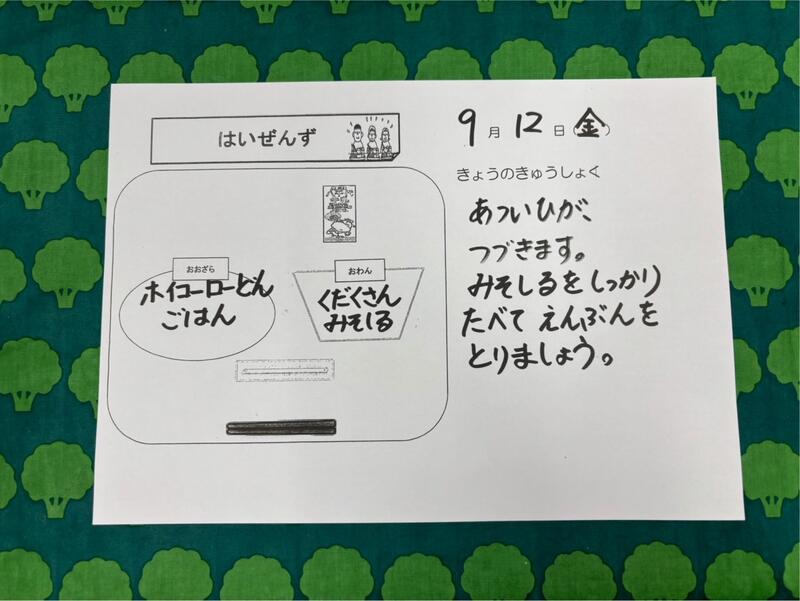 はいぜんず
おおざら
ホイコーローどん
ごはん
おわん
くだくさん
みそしる
9月12日(金)
きょうのきゅうしょく
あついひが、
つづきます。
みそしるをしっかり
たべて えんぶんを
とりましょう。